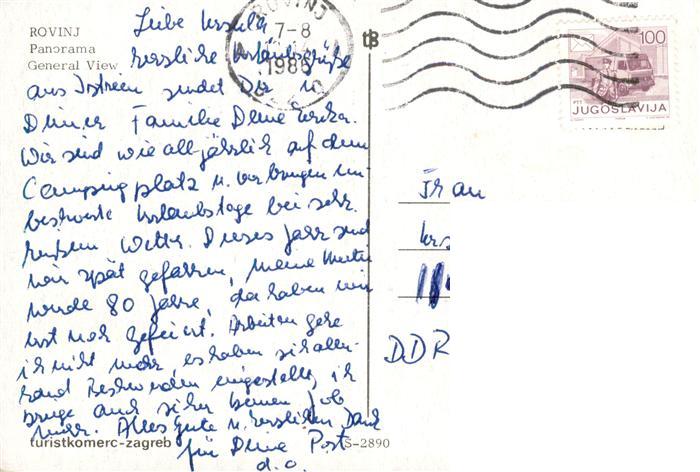 ROVINJ
Panorama
General View
ROVINJ
7-8
1986
100
PTT JUGOSLAVIJA
Liebe Ursula
herzliche Urlaubsgrüße
aus Istrien sendet Dir u.
Deiner Familie Deine
Wir sind wie alljährlich auf dem
Campingplatz u. verbringen un-
beschwerte Urlaubstage bei sehr
heißem Wetter. Dieses Jahr sind
wir spät gefahren, meine Mutti
wurde 80 Jahre, da haben wir
erst noch gefeiert. Arbeiten gehe
ich nicht mehr, es haben sich aller-
hand Beschwerden eingestellt, ich
auch sicher keinen Job
mehr. Alles Gute u. herzlichen Dank
für Deine Post
d. O.
Frau
DDR
turistkomerc-zagreb
S-2890